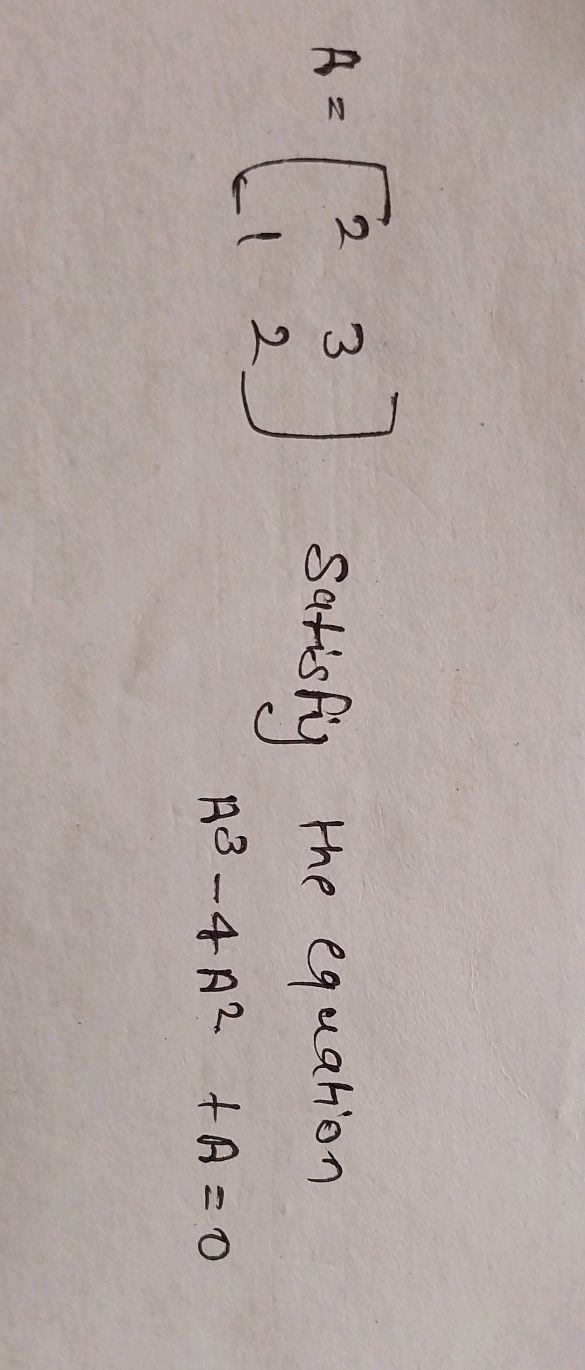 A = [ 2 3 satisfy the equation
1 2 ] A³ - 4A² + A = 0